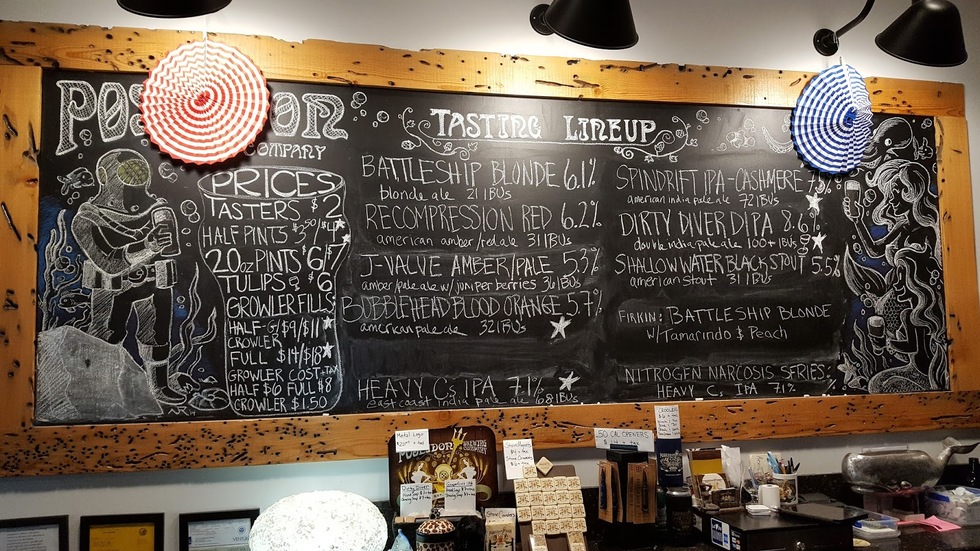 COMPANY
PRICES
TASTERS $2
HALF PINTS
20oz PINTS $6/$7
TULIPS $6
GROWLER FILLS
HALF-G/ $9/$11
CROWLER
FULL $14/$18
GROWLER COST+TAX
HALF $6 FULL $8
CROWLER $1.50
TASTING LINEUP
BATTLESHIP BLONDE 6.1%
blonde ale 21 IBUs
RECOMPRESSION RED 6.2%
american amber/red ale 31 IBUs
J-VALVE AMBER/PALE 5.3%
amber/pale ale w/ juniper berries 36 IBUs
BUBBLEHEAD BLOOD ORANGE 5.7%
american pale ale 32 IBUs
HEAVY Cs IPA 7.1%
east coast india pale ale 68 IBUs
SPINDRIFT IPA-CASHMERE
american india pale ale 72 IBUs
DIRTY DIVER DIPA 8.6%
double india pale ale 100+ IBUs
SHALLOW WATER BLACK STOUT 5.5%
american stout 31 IBUs
FIRKIN: BATTLESHIP BLONDE
w/Tamarindo & Peach
NITROGEN NARCOSIS SERIES:
HEAVY Cs IPA 7.1%
Metal Logo
.50 CAL OPENERS
+ tax
BREWING
COMPANY